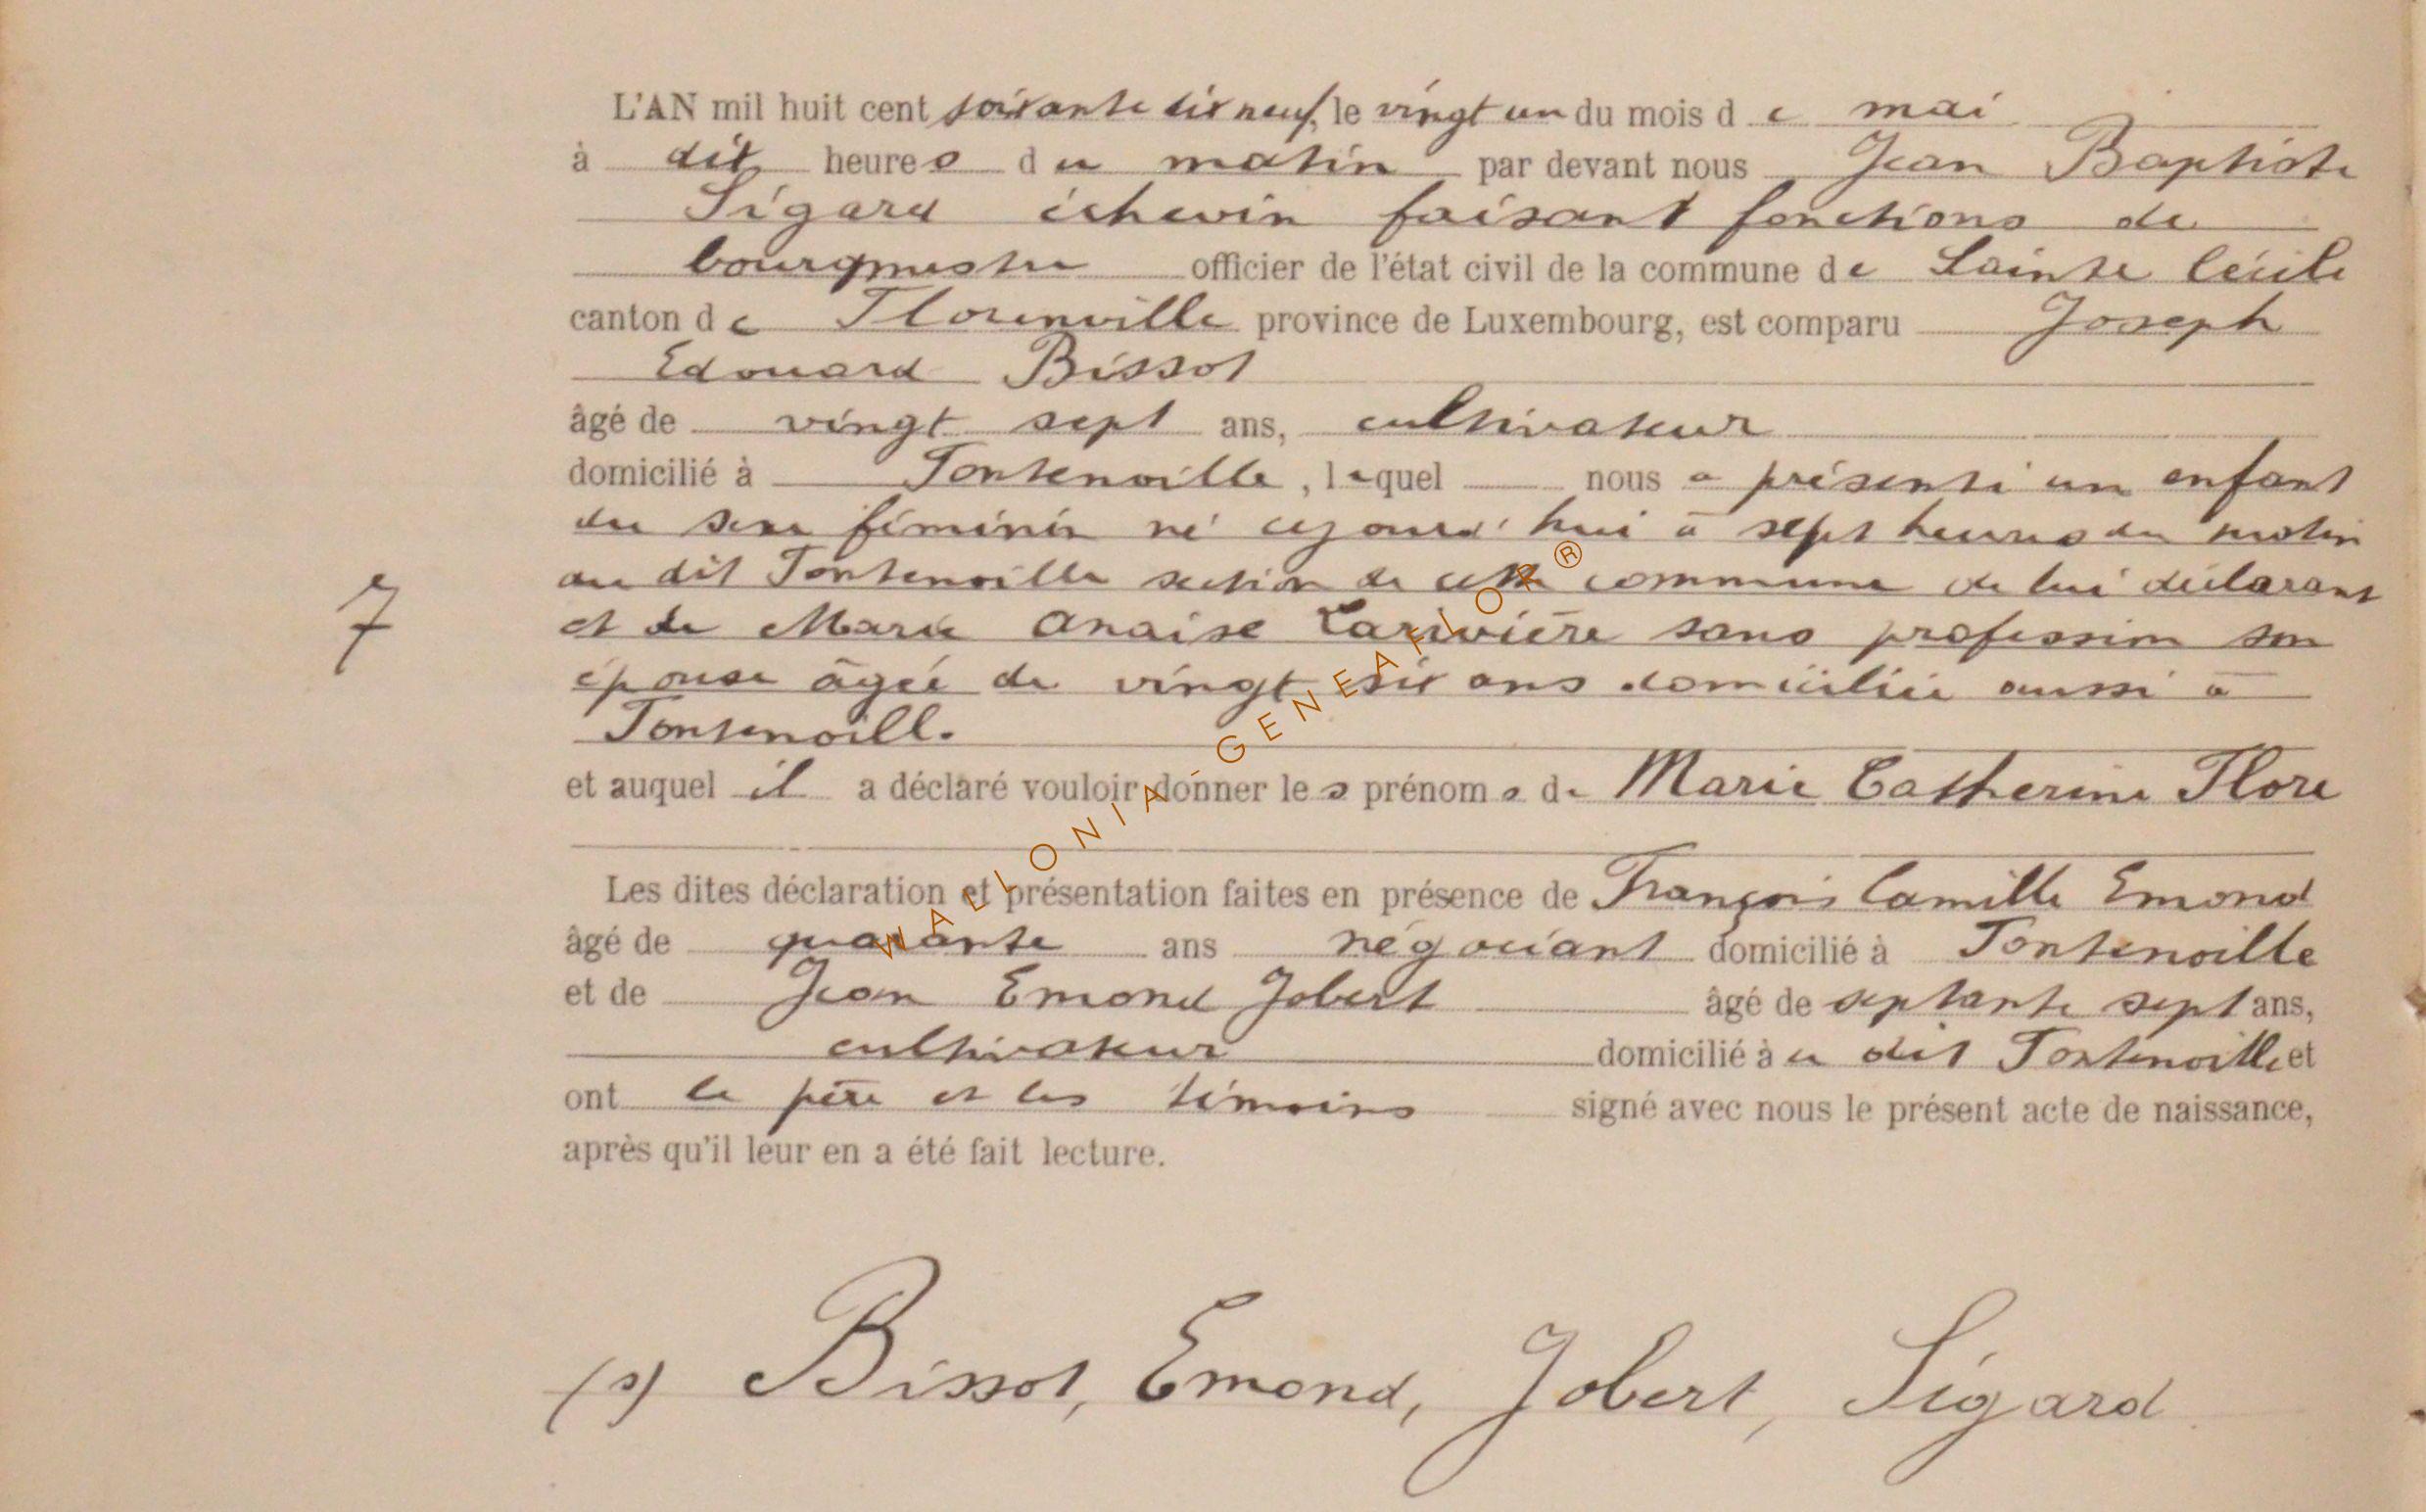 L'AN mil huit cent soixante dix neuf, le vingt un du mois de mai
à dix heures du matin par devant nous Jean Baptiste
Sigard échevin faisant fonctions de
bourgmestre officier de l'état civil de la commune de Sainte Cécile
canton de Florenville province de Luxembourg, est comparu Joseph
Edouard Bissot
âgé de vingt sept ans, cultivateur
domicilié à Fontenoille, lequel nous a présenté un enfant
du sexe féminin né cejourd'hui à sept heures du matin
au dit Fontenoille section de cette commune de lui déclarant
et de Marie Anaise Larivière sans profession son
épouse âgée de vingt six ans domiciliée aussi à
Fontenoill.
7
et auquel il a déclaré vouloir donner les prénoms de Marie Catherine Flore
Les dites déclaration et présentation faites en présence de François Camille Emond
âgé de quarante ans négociant domicilié à Fontenoille
et de Jean Emond Jobert âgé de septante sept ans,
cultivateur domicilié à u dit Fontenoille et
ont le père et les témoins signé avec nous le présent acte de naissance,
après qu'il leur en a été fait lecture.
(s) Bissot, Emond, Jobert, Sigard
WALLONIA-GENEAFLOR®